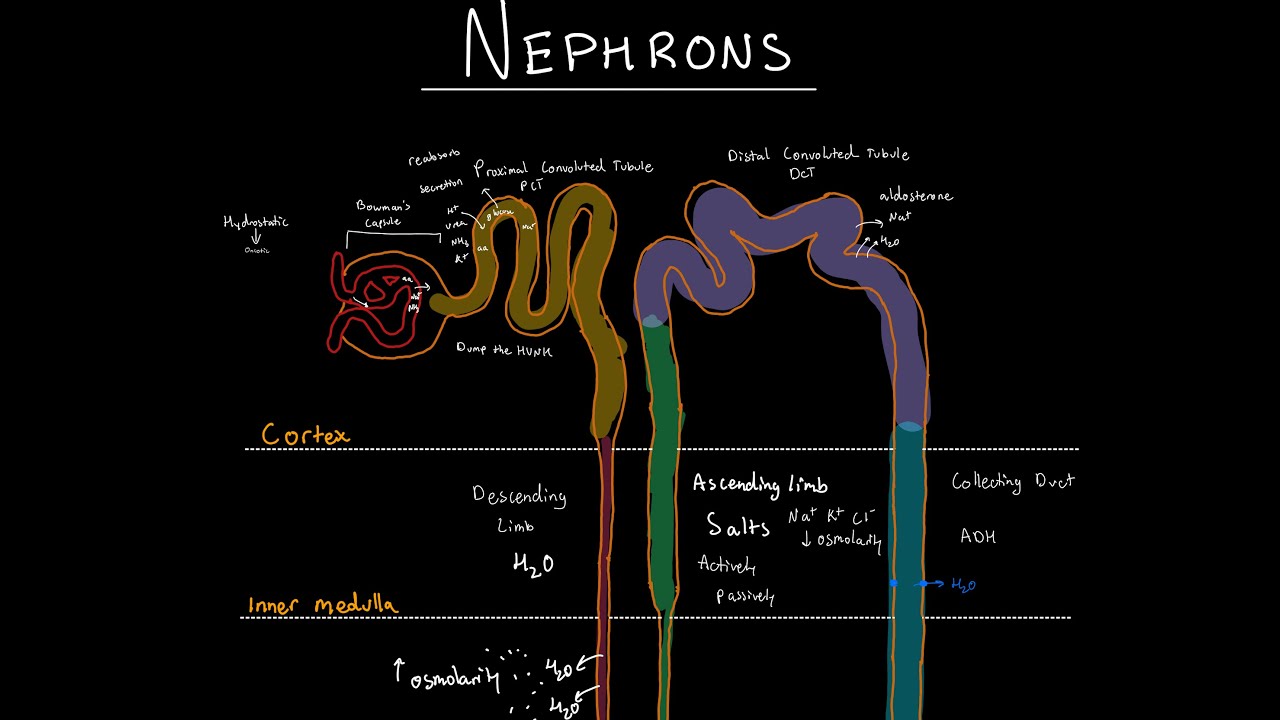 NEPHRONS
reabsorb
Proximal Convoluted Tubule
PCT
secretion
Distal Convoluted Tubule
DCT
aldosterone
Na⁺
H₂O
Hydrostatic
Oncotic
Bowman's
capsule
H⁺
urea
NH₃
K⁺
glucose
aa
Na⁺
aa
Na⁺
NH₃
Dump the HUNK
Cortex
Descending
limb
H₂O
Ascending limb
Salts Na⁺ K⁺ Cl⁻
↓ osmolarity
Actively
Passively
Collecting Duct
ADH
H₂O
Inner medulla
↑ osmolarity
H₂O
H₂O